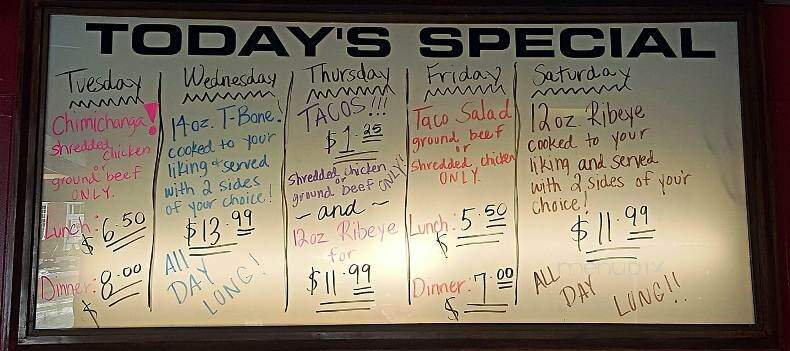 TODAY'S SPECIAL
Tuesday
Chimichanga!
shredded chicken
or
ground beef
ONLY.
Lunch: $6.50
Dinner: $8.00
Wednesday
14oz. T-Bone!
cooked to your
liking & served
with 2 sides
of your choice!
$13.99
All
DAY
LONG!
Thursday
TACOS!!!
$1.25
shredded chicken
or
ground beef ONLY!
~ and ~
12oz Ribeye
for
$11.99
Friday
Taco Salad
ground beef
or
Shredded chicken
ONLY.
Lunch: $5.50
Dinner: $7.00
Saturday
12oz. Ribeye
cooked to your
liking and served
with 2 sides of your
choice!
$11.99
menupix
ALL
DAY
LONG!!